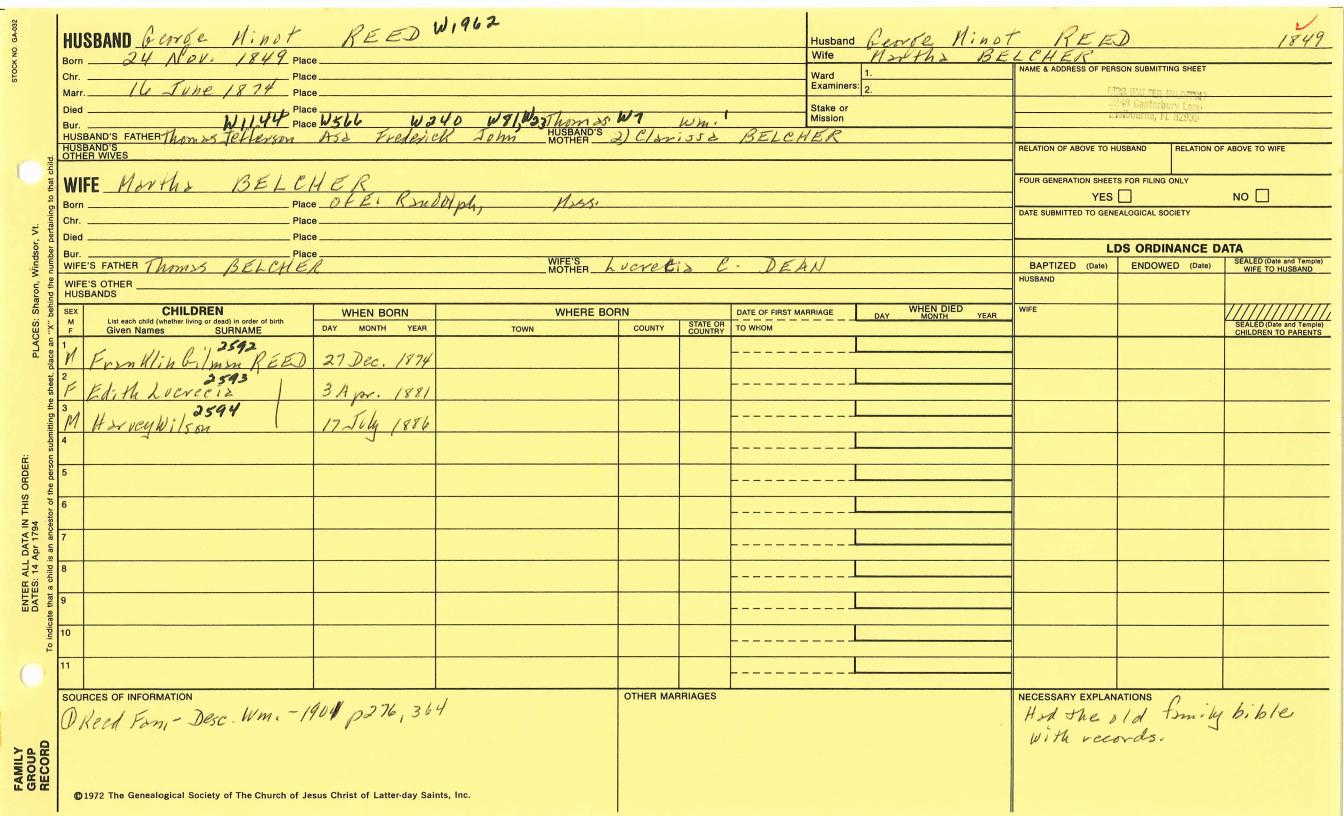 STOCK NO. GA-002
HUSBAND George Minot REED W1962
Born 24 Nov. 1849 Place
Chr. Place
Marr. 16 June 1874 Place
Died Place
Bur. W1144 Place W566 W240 W81, W23 Thomas W7 Wm.¹
HUSBAND'S FATHER Thomas Jefferson Asa Frederick John HUSBAND'S MOTHER 2) Clarissa BELCHER
HUSBAND'S OTHER WIVES
Husband George Minot REED 1849
Wife Martha BELCHER
Ward Examiners: 1.
2.
Stake or Mission
NAME & ADDRESS OF PERSON SUBMITTING SHEET
Canterbury Lane
Melbourne, FL 32935
RELATION OF ABOVE TO HUSBAND RELATION OF ABOVE TO WIFE
FOUR GENERATION SHEETS FOR FILING ONLY
YES NO
DATE SUBMITTED TO GENEALOGICAL SOCIETY
WIFE Martha BELCHER
Born Place of E. Randolph, Mass.
Chr. Place
Died Place
Bur. Place
WIFE'S FATHER Thomas BELCHER WIFE'S MOTHER Lucretia C. DEAN
WIFE'S OTHER HUSBANDS
LDS ORDINANCE DATA
BAPTIZED (Date) ENDOWED (Date) SEALED (Date and Temple) WIFE TO HUSBAND
HUSBAND
WIFE
SEALED (Date and Temple) CHILDREN TO PARENTS
SEX M F
CHILDREN
List each child (whether living or dead) in order of birth
Given Names SURNAME
WHEN BORN
DAY MONTH YEAR
WHERE BORN
TOWN COUNTY STATE OR COUNTRY
DATE OF FIRST MARRIAGE
TO WHOM
WHEN DIED
DAY MONTH YEAR
1 M Franklin Gilman REED 2592 27 Dec. 1874
2 F Edith Lucrecia 2593 3 Apr. 1881
3 M Harvey Wilson 2594 17 July 1886
4
5
6
7
8
9
10
11
SOURCES OF INFORMATION
① Reed Fam,- Desc. Wm. -1901 p276, 364
OTHER MARRIAGES
NECESSARY EXPLANATIONS
Had the old family bible
with records.
©1972 The Genealogical Society of The Church of Jesus Christ of Latter-day Saints, Inc.
FAMILY GROUP RECORD
ENTER ALL DATA IN THIS ORDER:
DATES: 14 Apr 1794
PLACES: Sharon, Windsor, Vt.
To indicate that a child is an ancestor of the person submitting the sheet, place an "X" behind the number pertaining to that child.